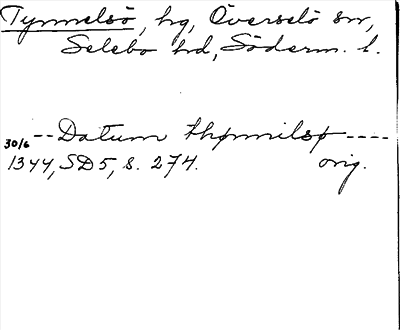 Tynnelsö, hg, Överselö sn,
Selebo hd, Söderm. l.
30/6 -- Datum thynnilsø ----
1344, SD5, s. 274. orig.